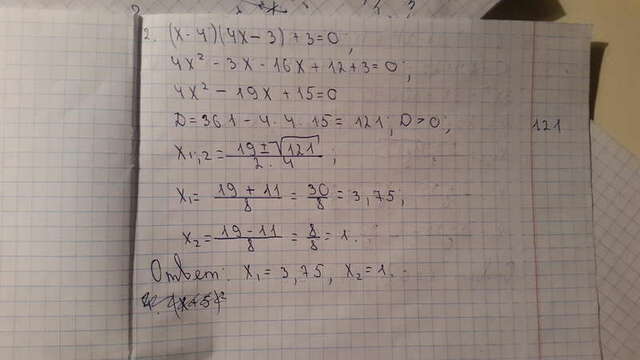 2. (x-4)(4x-3)+3=0;
4x² - 3x - 16x + 12 + 3 = 0;
4x² - 19x + 15 = 0
D = 361 - 4 · 4 · 15 = 121; D > 0;
121
x₁,₂ = (19 ± √121) / (2 · 4);
x₁ = (19 + 11) / 8 = 30/8 = 3,75;
x₂ = (19 - 11) / 8 = 8/8 = 1.
Ответ: x₁ = 3,75, x₂ = 1.